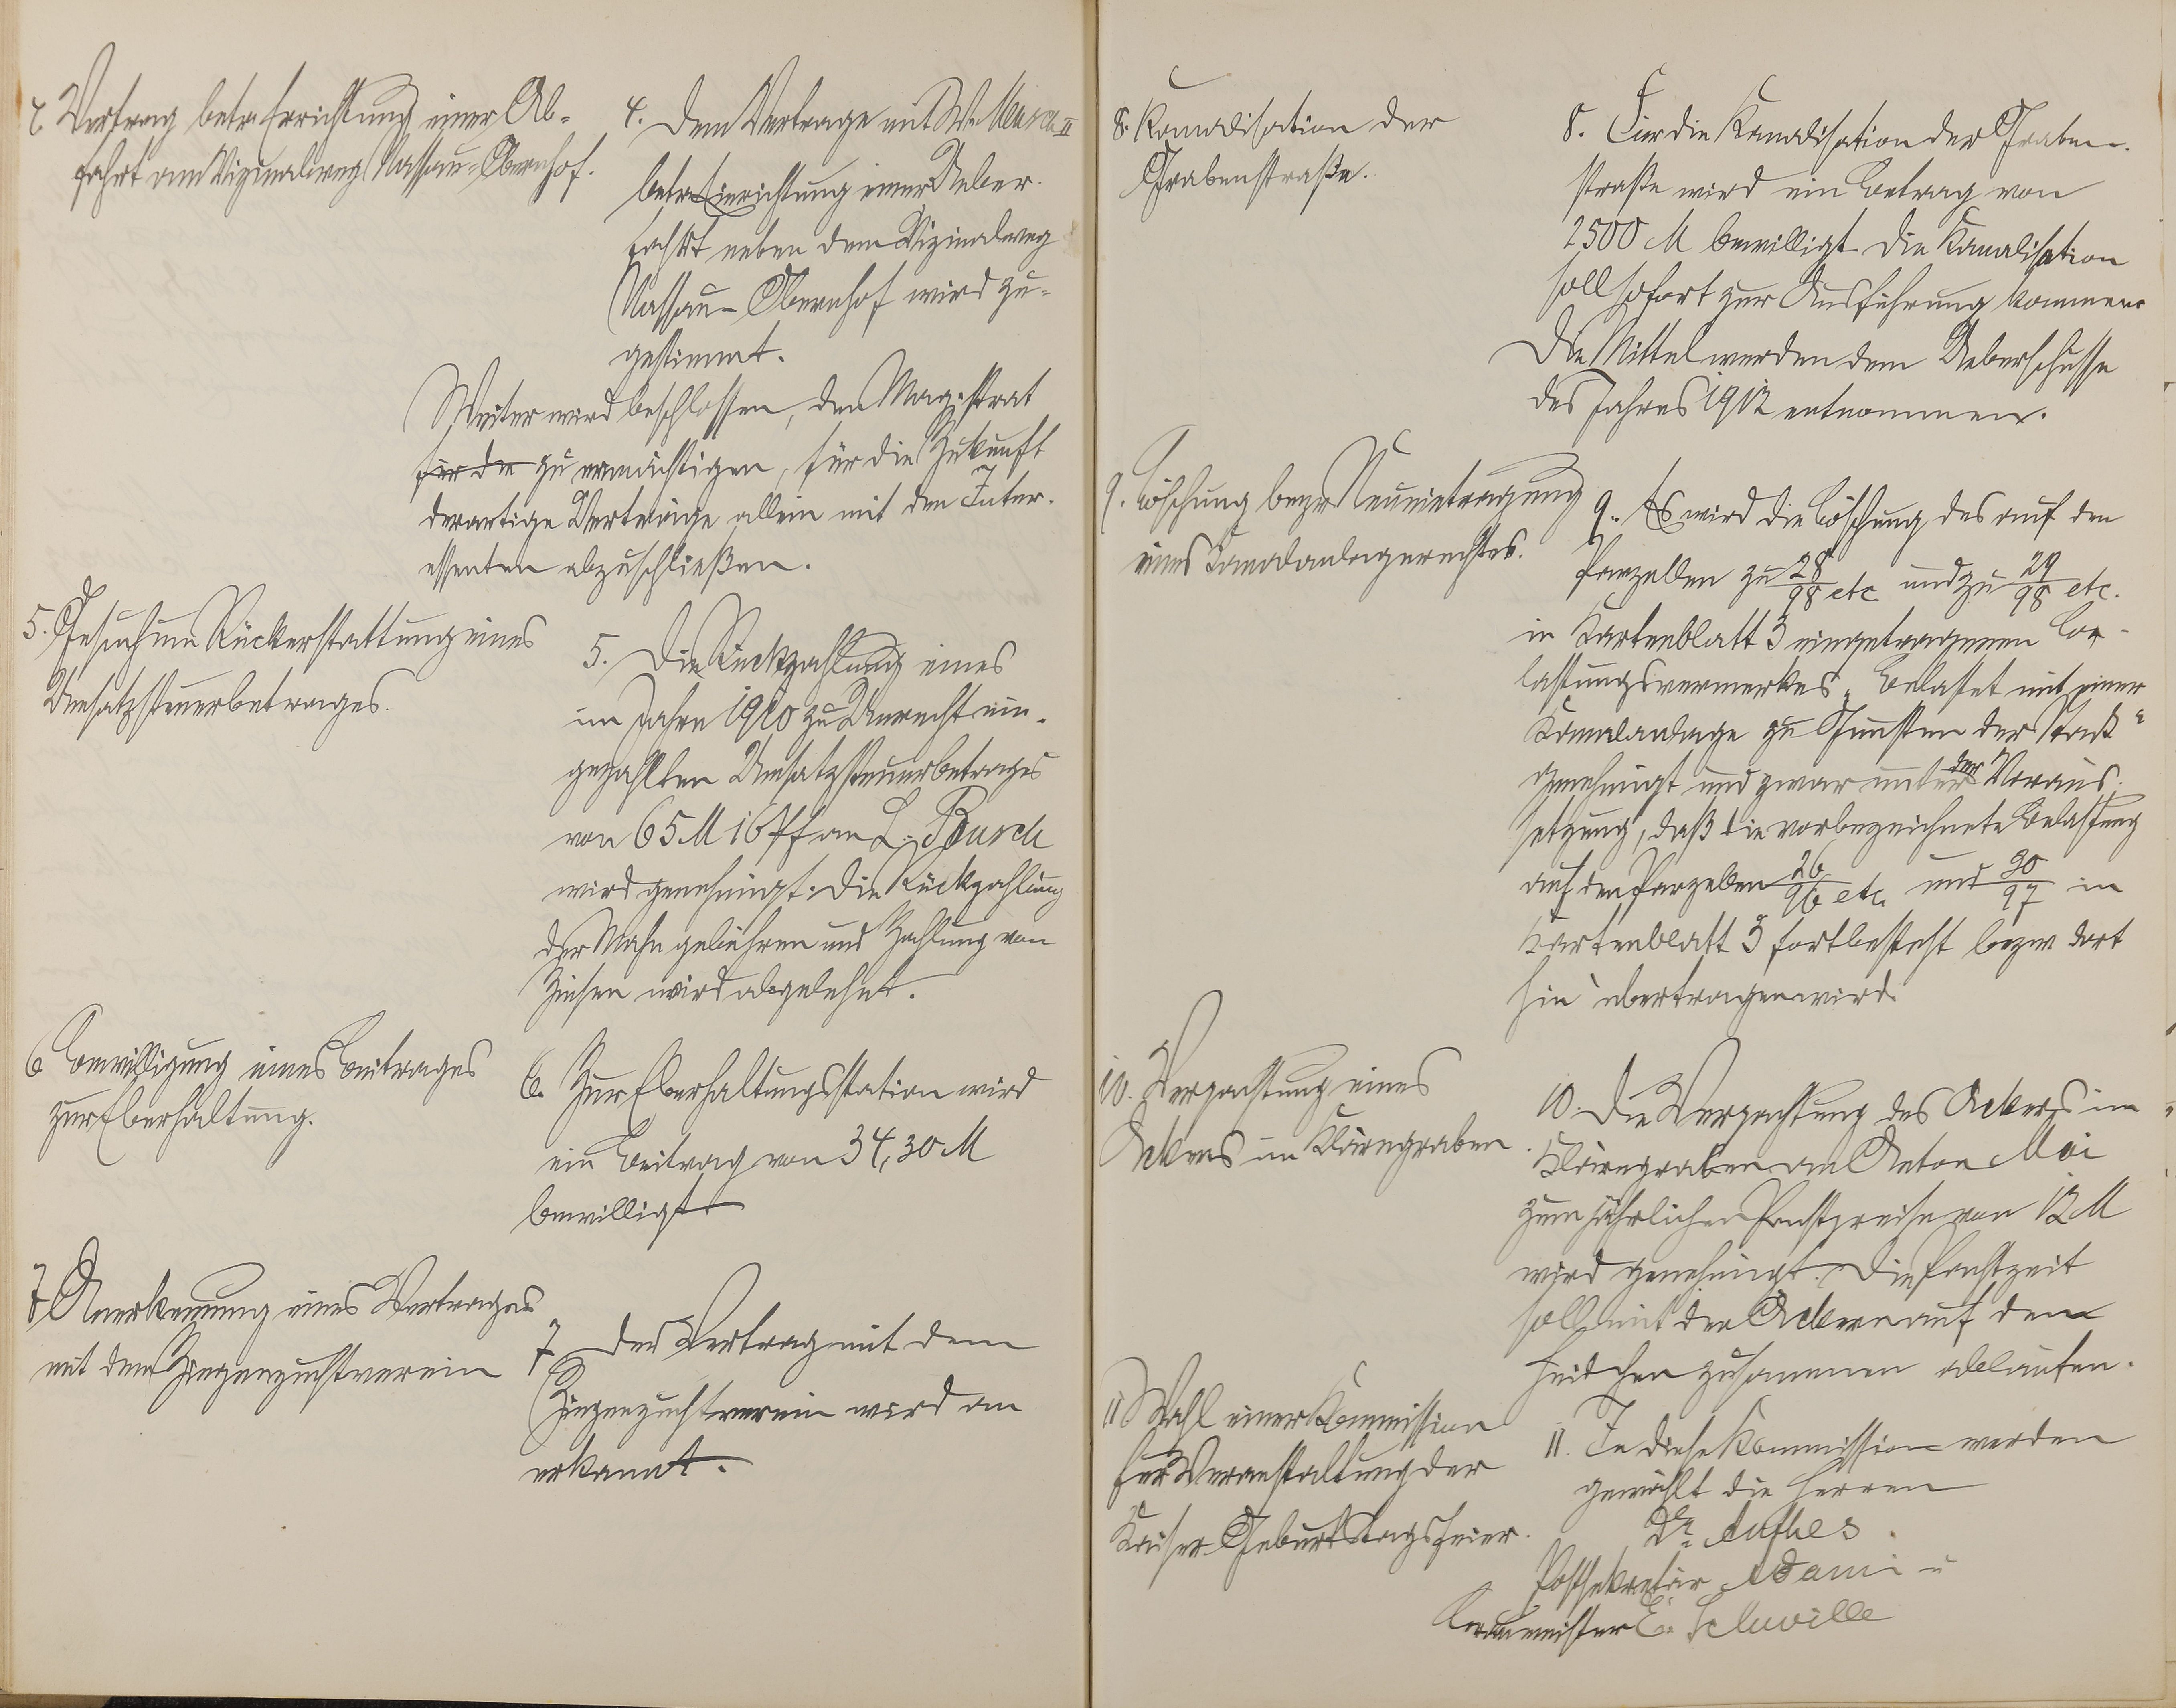 4. Vertrag betr. Errichtung einer Ab-
fahrt am Vizinalweg Nassau-Obernhof.
4. Dem Vertrage mit W.
betr. Einrichtung einer Ueber-
fahrt neben dem Vizinalweg
Nassau-Obernhof wird zu-
gestimmt.
Weiter wird beschlossen, den Magistrat
für die zu ermächtigen, für die Zukunft
derartige Verträge allein mit den Inter-
essenten abzuschließen.
5. Gesuch um Rückerstattung eines
Umsatzsteuerbetrages.
5. Die Rückzahlung eines
im Jahre 1910 zu Unrecht ein-
gezahlten Umsatzsteuerbetrages
von 65 M 16 Pf an L. Busch
wird genehmigt. Die Rückzahlung
der Mahngebühren und Zahlung von
Zinsen wird abgelehnt.
6 Bewilligung eines Beitrages
zur Eberhaltung.
6. Zur Eberhaltungsstation wird
ein Beitrag von 34,30 M
bewilligt.
7 Anerkennung eines Vertrages
mit dem Ziegenzuchtverein
7 Der Vertrag mit dem
Ziegenzuchtverein wird an
erkannt.
8. Kanalisation der
Grabenstraße.
8. Für die Kanalisation der Graben-
straße wird ein Betrag von
2500 M bewilligt. Die Kanalisation
soll sofort zur Ausführung kommen.
Die Mittel werden dem Ueberschusse
des Jahres 1912 entnommen.
9. Löschung bezw Neueintragung
eines Kanalanlagerechtes.
9. Es wird die Löschung des auf den
Parzellen zu 28/98 etc und zu 29/98 etc.
in Kartenblatt 3 eingetragenen Be-
lastungsvermerkes „Belastet mit einer
Kanalanlage zu Gunsten der Stadt“
genehmigt und zwar unter der Voraus-
setzung, daß die vorbezeichnete Belastung
auf den Parzellen 26/96 etc. und 30/97 in
Kartenblatt 3 fortbesteht bezw dort
hin übertragen wird.
10. Verpachtung eines
Ackers im
10. Die Verpachtung des Ackers im
an Anton Mai
zum jährlichen Pachtpreise von 12 M
wird genehmigt. Die Pachtzeit
soll mit den Äckern auf dem
Heidchen zusammen ablaufen.
11 Wahl einer Kommission
zur Veranstaltung der
Kaiser-Geburtstagsfeier.
11. In diese Kommission werden
gewählt die Herren
Dr. Anthes
Postsekretär Adami u
E.